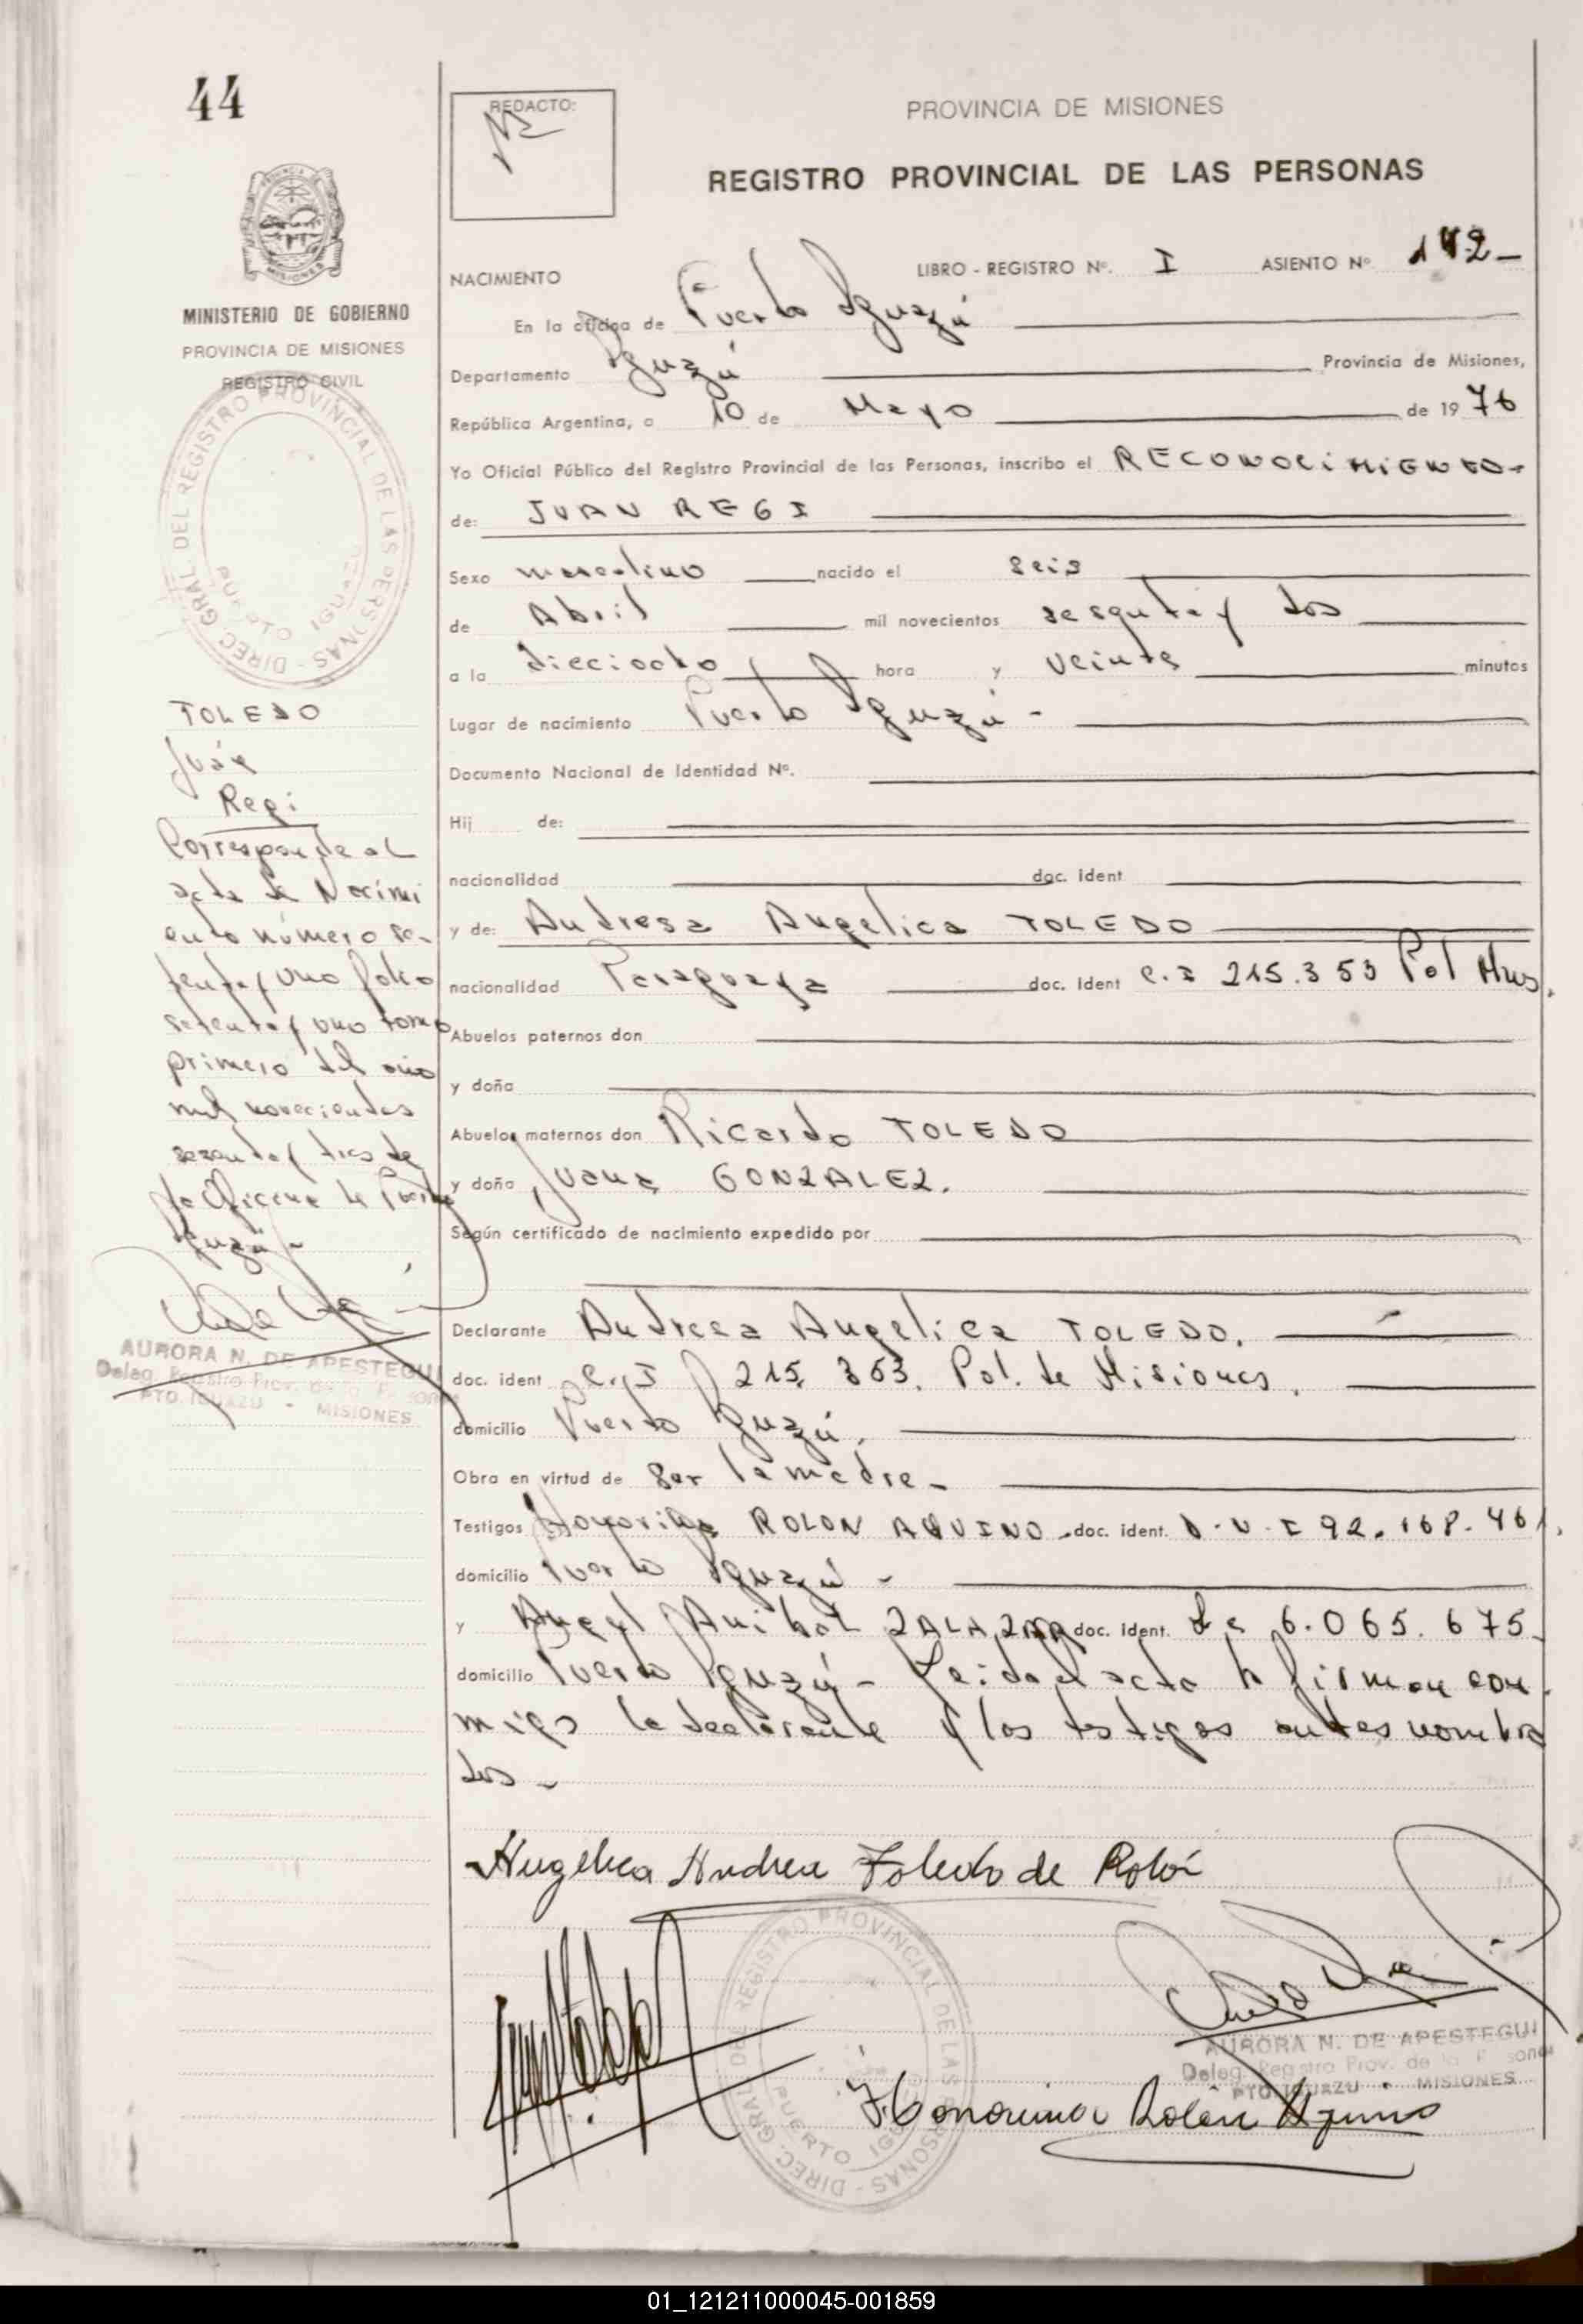 44
REDACTO:
PROVINCIA DE MISIONES
REGISTRO PROVINCIAL DE LAS PERSONAS
MINISTERIO DE GOBIERNO
PROVINCIA DE MISIONES
REGISTRO CIVIL
DIREC. GRAL. DEL REGISTRO PROVINCIAL DE LAS PERSONAS -
PUERTO IGUAZU
TOLEDO
Juán
Regi
Corresponde al
acta de Nacimi
ento número se-
tenta y uno folio
setenta y uno tomo
primero del año
mil novecientos
sesenta y tres de
la Oficina de Puerto
Iguazú -
AURORA N. DE APESTEGUI
Deleg. Registro Prov. de la Persona
PTO. IGUAZU - MISIONES
NACIMIENTO LIBRO - REGISTRO Nº. I ASIENTO Nº 142-
En la oficina de Puerto Iguazú
Departamento Iguazú Provincia de Misiones,
República Argentina, a 10 de Mayo de 1976
Yo Oficial Público del Registro Provincial de las Personas, inscribo el RECONOCIMIENTO-
de: JUAN REGI
Sexo masculino nacido el seis
de Abril mil novecientos sesenta y dos
a la dieciocho hora y veinte minutos
Lugar de nacimiento Puerto Iguazú -
Documento Nacional de Identidad Nº.
Hij de:
nacionalidad doc. ident
y de: Andresa Angelica TOLEDO
nacionalidad Paraguaya doc. ident C. I 215.353 Pol Mns.
Abuelos paternos don
y doña
Abuelos maternos don Ricardo TOLEDO
y doña Juana GONZALEZ.
Según certificado de nacimiento expedido por
Declarante Andresa Angelica TOLEDO.
doc. ident C. I 215. 353. Pol. de Misiones.
domicilio Puerto Iguazú.
Obra en virtud de ser la madre -
Testigos ROLON AQUINO - doc. ident. D. N. I 92. 168. 461.
domicilio Puerto Iguazú -
y Angel Anibal ZALAZAR doc. ident. L e 6.065. 675-
domicilio Puerto Iguazú - Leida el acta la firman con-
migo la declarante y los testigos antes nombra
dos -
Angelica Andrea Toledo de Rolón
DIREC. GRAL. DEL REGISTRO PROVINCIAL DE LAS PERSONAS -
PUERTO IGUAZU
AURORA N. DE APESTEGUI
Deleg. Registro Prov. de la Persona
PTO. IGUAZU - MISIONES
Honorina Rolón Aquino
01_121211000045-001859